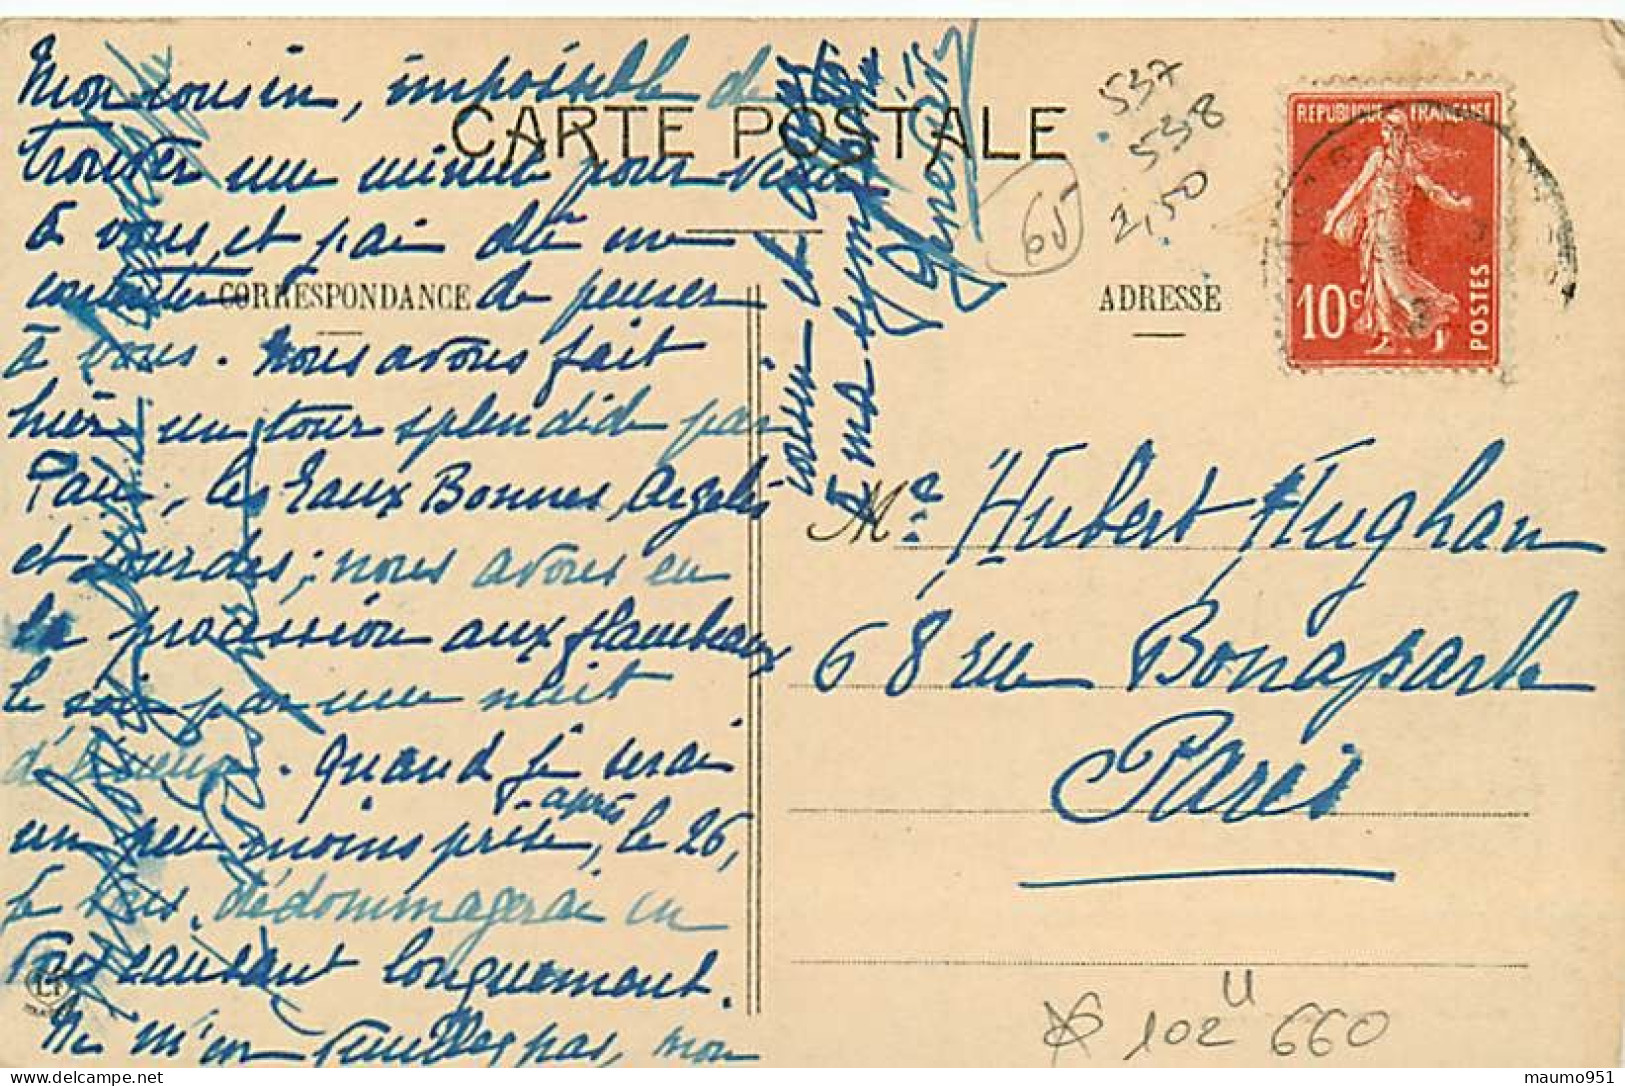 Mon cousin, impossible de
trouver une minute pour venir
à vous, et j'ai dû me
contenter de penser
à vous. Nous avons fait
hier un tour splendide par
Pau, les Eaux Bonnes, Argelès
et Lourdes; nous avons eu
la procession aux flambeaux
le soir par une nuit
quand je serai
un peu moins pressé, après le 26,
je vous dédommagerai en
vous causant longuement.
Ne m'en veuillez pas, mon
cousin et
à ma sympathie
Geneviève
CARTE POSTALE
CORRESPONDANCE
ADRESSE
537
538
2,50
65
REPUBLIQUE FRANÇAISE
10c
POSTES
Mr Hubert Hughan
68 rue Bonaparte
Paris
102 U 660
maumo951